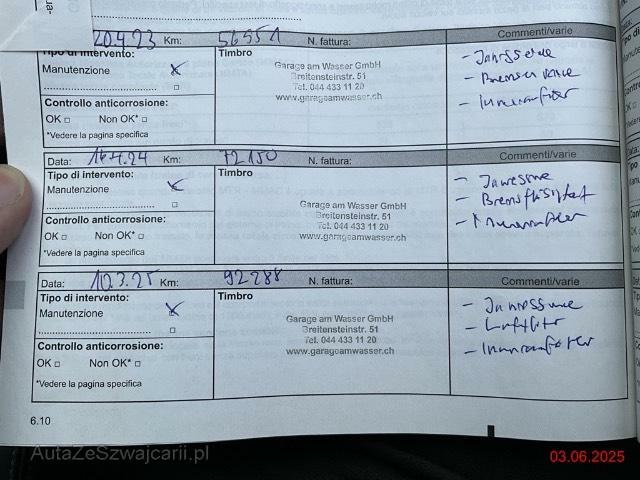 ua-
20.4.23 Km: 56951 N. fattura: Commenti/varie
Tipo di intervento:
Manutenzione x
Controllo anticorrosione:
OK □ Non OK* □
*Vedere la pagina specifica
Garage am Wasser GmbH
Breitensteinstr. 51
Tel. 044 433 11 20
www.garageamwasser.ch
- Innenraumfilter
Data: 16.4.24 Km: 72150 N. fattura: Commenti/varie
Tipo di intervento:
Manutenzione x
Controllo anticorrosione:
OK □ Non OK* □
*Vedere la pagina specifica
Timbro
Garage am Wasser GmbH
Breitensteinstr. 51
Tel. 044 433 11 20
www.garageamwasser.ch
- Bremsflüssigkeit
- Innenraumfilter
Data: 10.3.25 Km: 92288 N. fattura: Commenti/varie
Tipo di intervento:
Manutenzione x
Controllo anticorrosione:
OK □ Non OK* □
*Vedere la pagina specifica
Timbro
Garage am Wasser GmbH
Breitensteinstr. 51
Tel. 044 433 11 20
www.garageamwasser.ch
- Luftfilter
- Innenraumfilter
6.10
AutaZeSzwajcarii.pl
03.06.2025